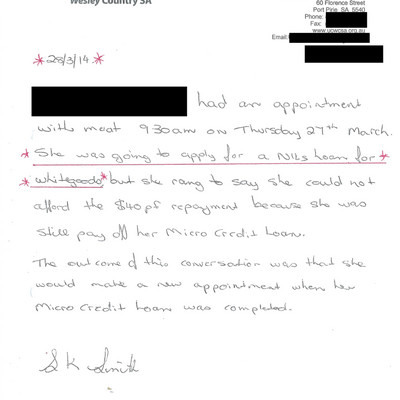 Wesley Country SA
60 Florence Street
Port Pirie, SA, 5540
Phone:
Fax:
www.ucwcsa.org.au
Email:
*28/3/14*
had an appointment
with me at 930am on Thursday 27th March.
*She was going to apply for a NILs loan for*
*whitegoods* but she rang to say she could not
afford the $40pf repayment because she was
still pay off her Micro Credit Loan.
The outcome of this conversation was that she
would make a new appointment when her
Micro Credit Loan was completed.
S K Smith